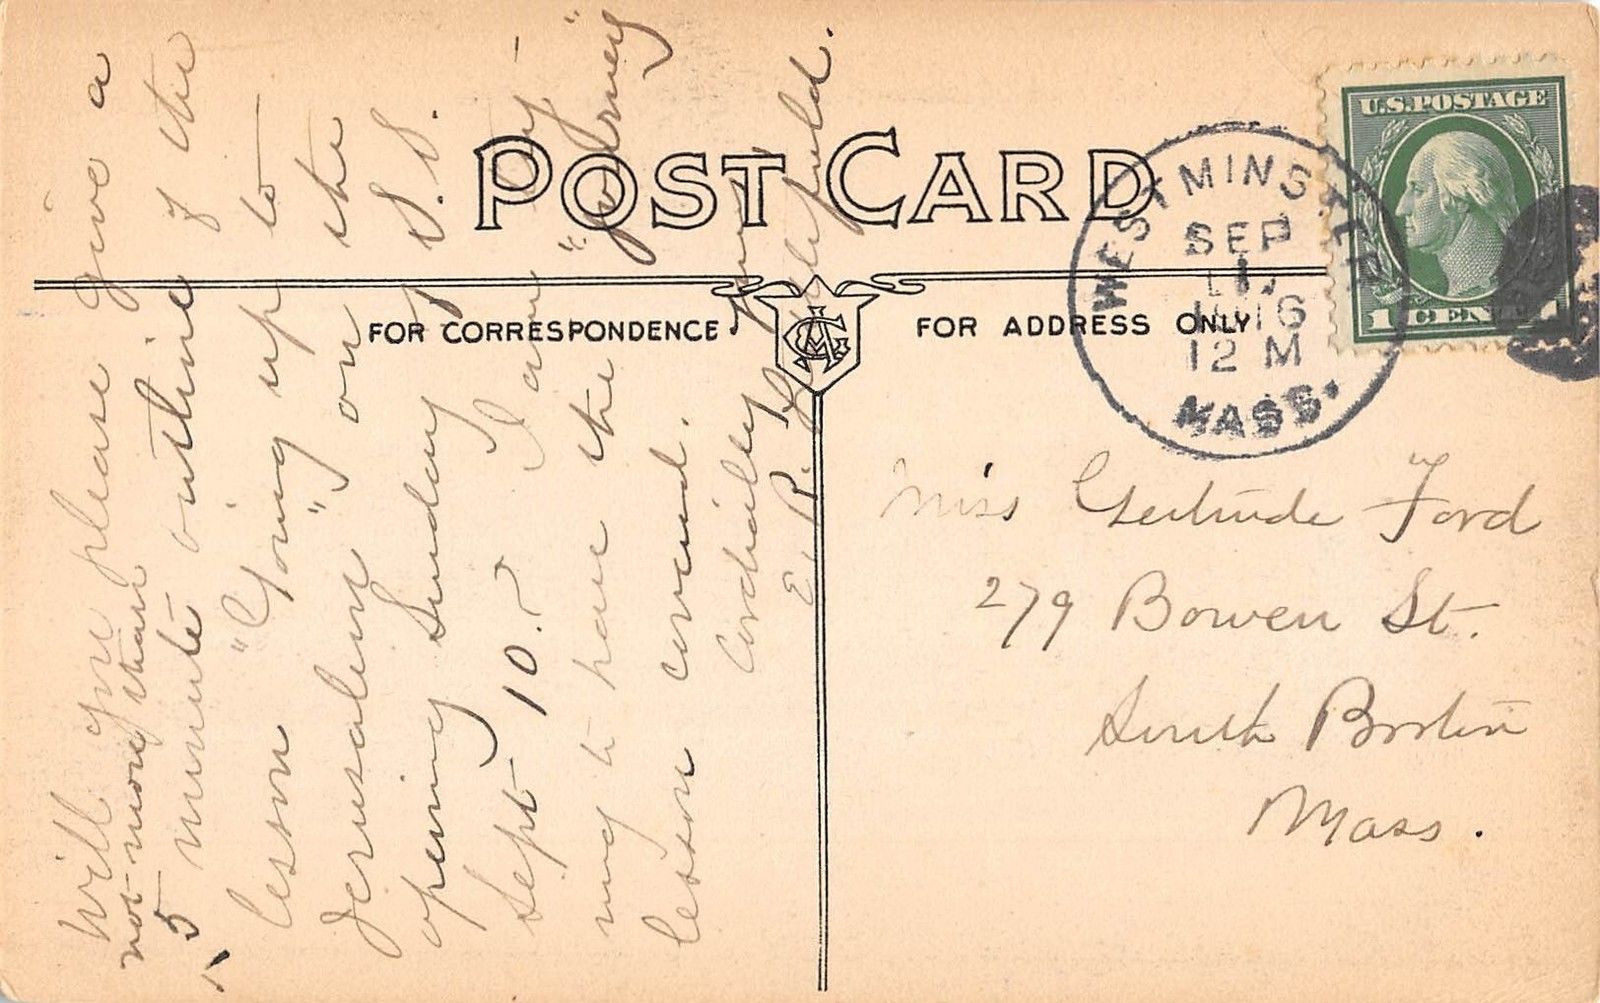 POST CARD
FOR CORRESPONDENCE
FOR ADDRESS ONLY
U.S. POSTAGE
1 CENT
WESTMINSTER
SEP
1916
12 M
MASS.
Miss Gertrude Ford
279 Bowen St.
South Boston
Mass.
Will you please give a
not more than
5 minute outline of the
lesson "Going up to
Jerusalem" on the
opening Sunday of S.S.
Sept 10. I am try-
ing to have the "journey"
lesson covered.
Cordially yours
E. R.